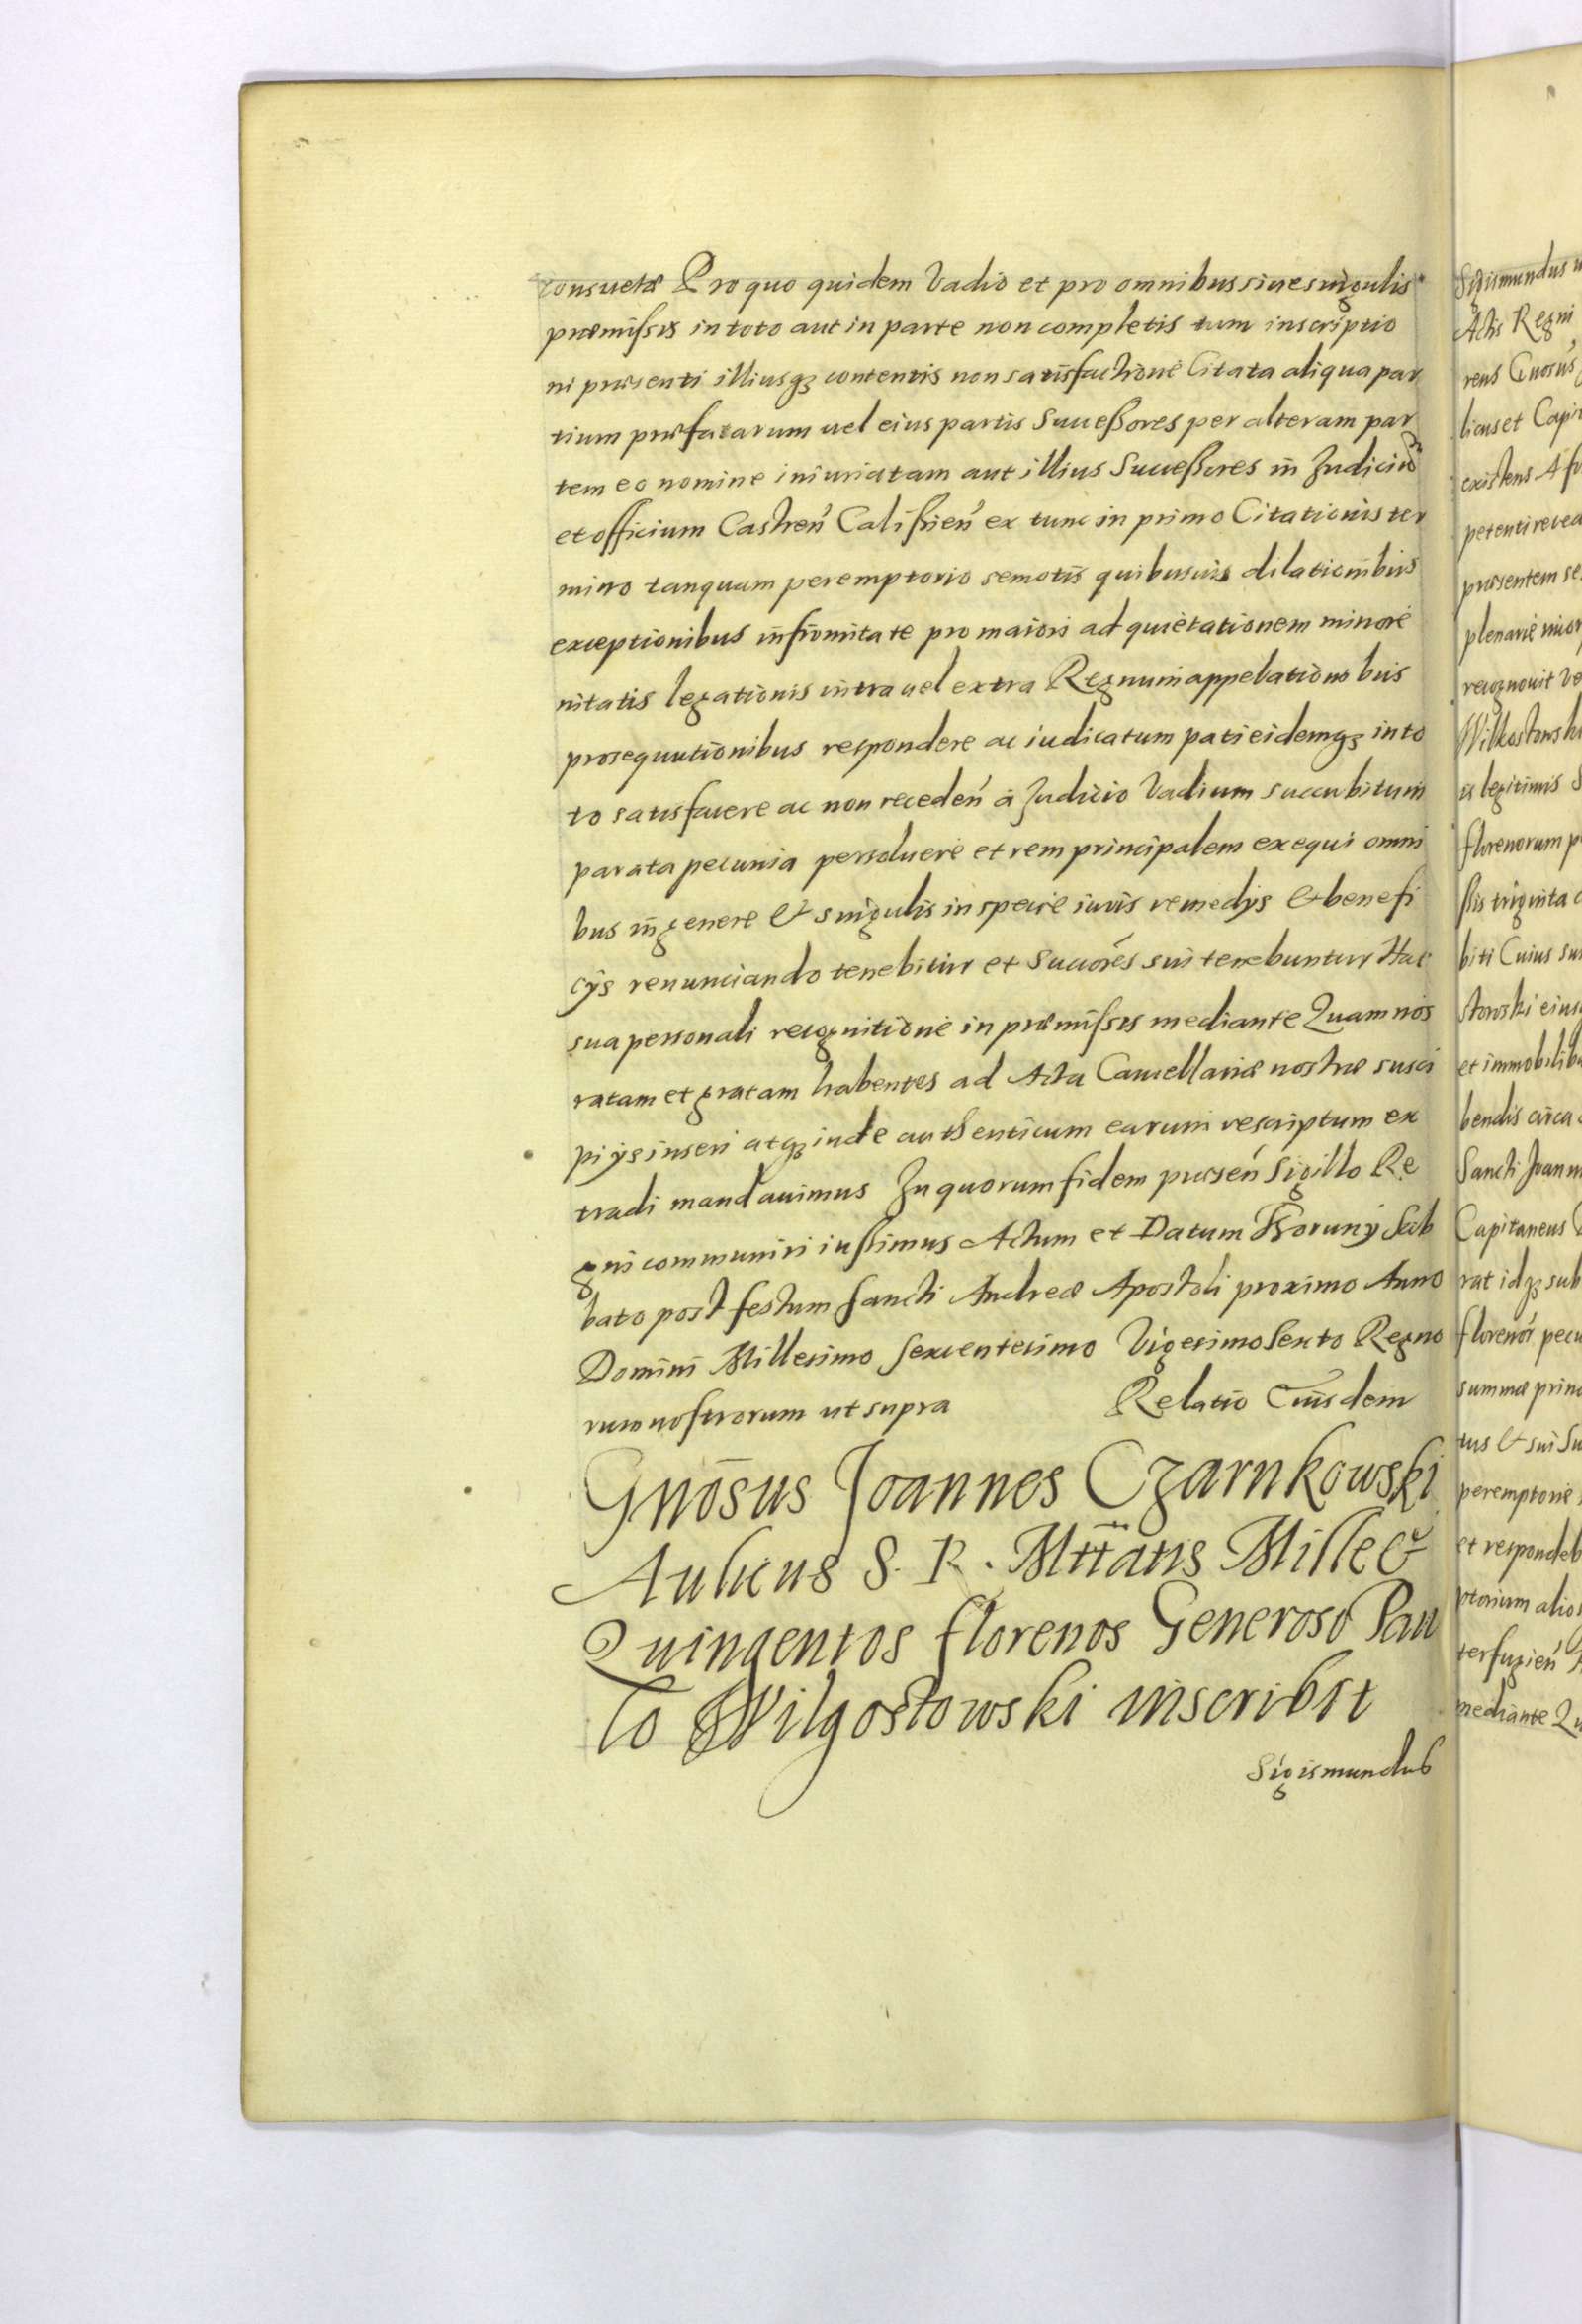 consuetæ Pro quo quidem Vadio et pro omnibus siue singulis
præmissis in toto aut in parte non completis tum inscriptio
ni præsenti illiusqȝ contentis non satisfactione Citata aliqua par
tium præfatarum uel eius partis Successores per alteram par
tem eo nomine iniuriatam aut illius Successores in Iudicium
et officium Castren̄ Calissien̄ ex tunc in primo Citationis ter
mino tanquam peremptorio semotis quibusuis dilationibus
exceptionibus infirmitate pro maiori ad quietationem minore
nitatis legationis intra uel extra Regnum appelationibus
prosequutionibus respondere ac iudicatum pati eidemqȝ in to
to satisfacere ac non receden̄ à Iudicio Vadium succubitum
parata pecunia persoluere et rem principalem exequi omni
bus in genere & singulis in specie iuris remedijs & benefi
cijs renunciando tenebitur et Succōres sui tenebuntur Hac
sua personali recognitione in præmissis mediante Quam nos
ratam et gratam habentes ad Acta Cancellariæ nostræ susci
pi ijs inseri atqȝ inde authenticum earum rescriptum ex
tradi mandauimus In quorum fidem præsen̄ Sigillo Re
gni communiri iussimus Actum et Datum Thorunij Sab
bato post festum Sancti Andreæ Apostoli proximo Anno
Domini Millesimo Sexcentesimo Vigesimo Sexto Regno
rum nostrorum ut supra Relatio Eiusdem
Gnōsus Joannes Czarnkowski
Aulicus S. R. Mttatis Mille &
Quingentos florenos Generoso Pau
lo Wilgostowski inscribit
Sigismundus
Sigismundus
Actis Regni
rens Gnosus
licus et Capi
existens A fo
petenti reced
præsentem se
plenarie
recognouit Ve
Wilkostowski
is legitimis S
florenorum p
ssis triginta
biti Cuius su
stowski eius
et immobilib
bendis circa
Sancti Joann
Capitaneus
rat idqȝ sub
florenor̄ pecu
summæ princ
tus & sui Su
peremptorie
et respondeb
ptorium alios
terfugien̄
mediante Qu